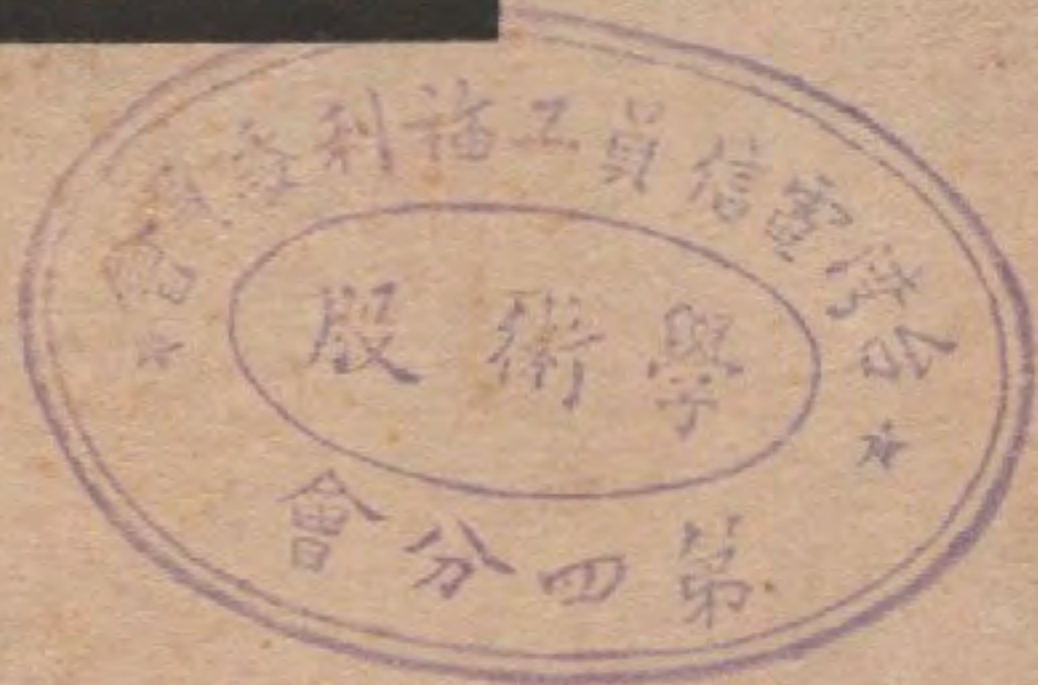 台灣電信員工福利委員會
學術股
第四分會